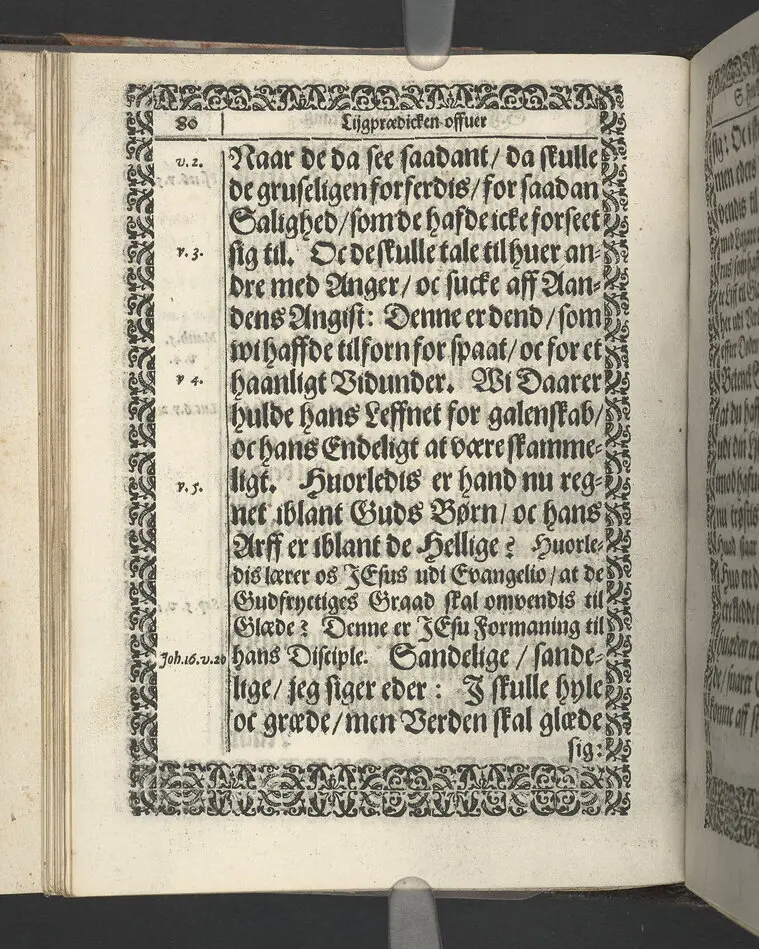 80 Lijgprædicken offuer
v. 2. Naar de da see saadant/ da skulle
de gruseligen forferdis/ for saadan
Salighed/ som de hafde icke forseet
v. 3. sig til. Oc de skulle tale til huer an-
dre med Anger/ oc sucke aff Aan-
dens Angist: Denne er dend/ som
wi haffde tilforn for spaat/ oc for et
v 4. haanligt Vidunder. Wi Daarer
hulde hans Leffnet for galenskab/
oc hans Endeligt at være skamme-
v. 5. ligt. Huorledis er hand nu reg-
net iblant Guds Børn/ oc hans
Arff er iblant de Hellige? Huorle-
dis lærer os JEsus udi Evangelio/ at de
Gudfryctiges Graad skal omvendis til
Glæde? Denne er JEsu Formaning til
Joh. 16. v. 20 hans Disciple. Sandelige/ sande-
lige/ jeg siger eder: I skulle hyle
oc græde/ men Verden skal glæde
sig: